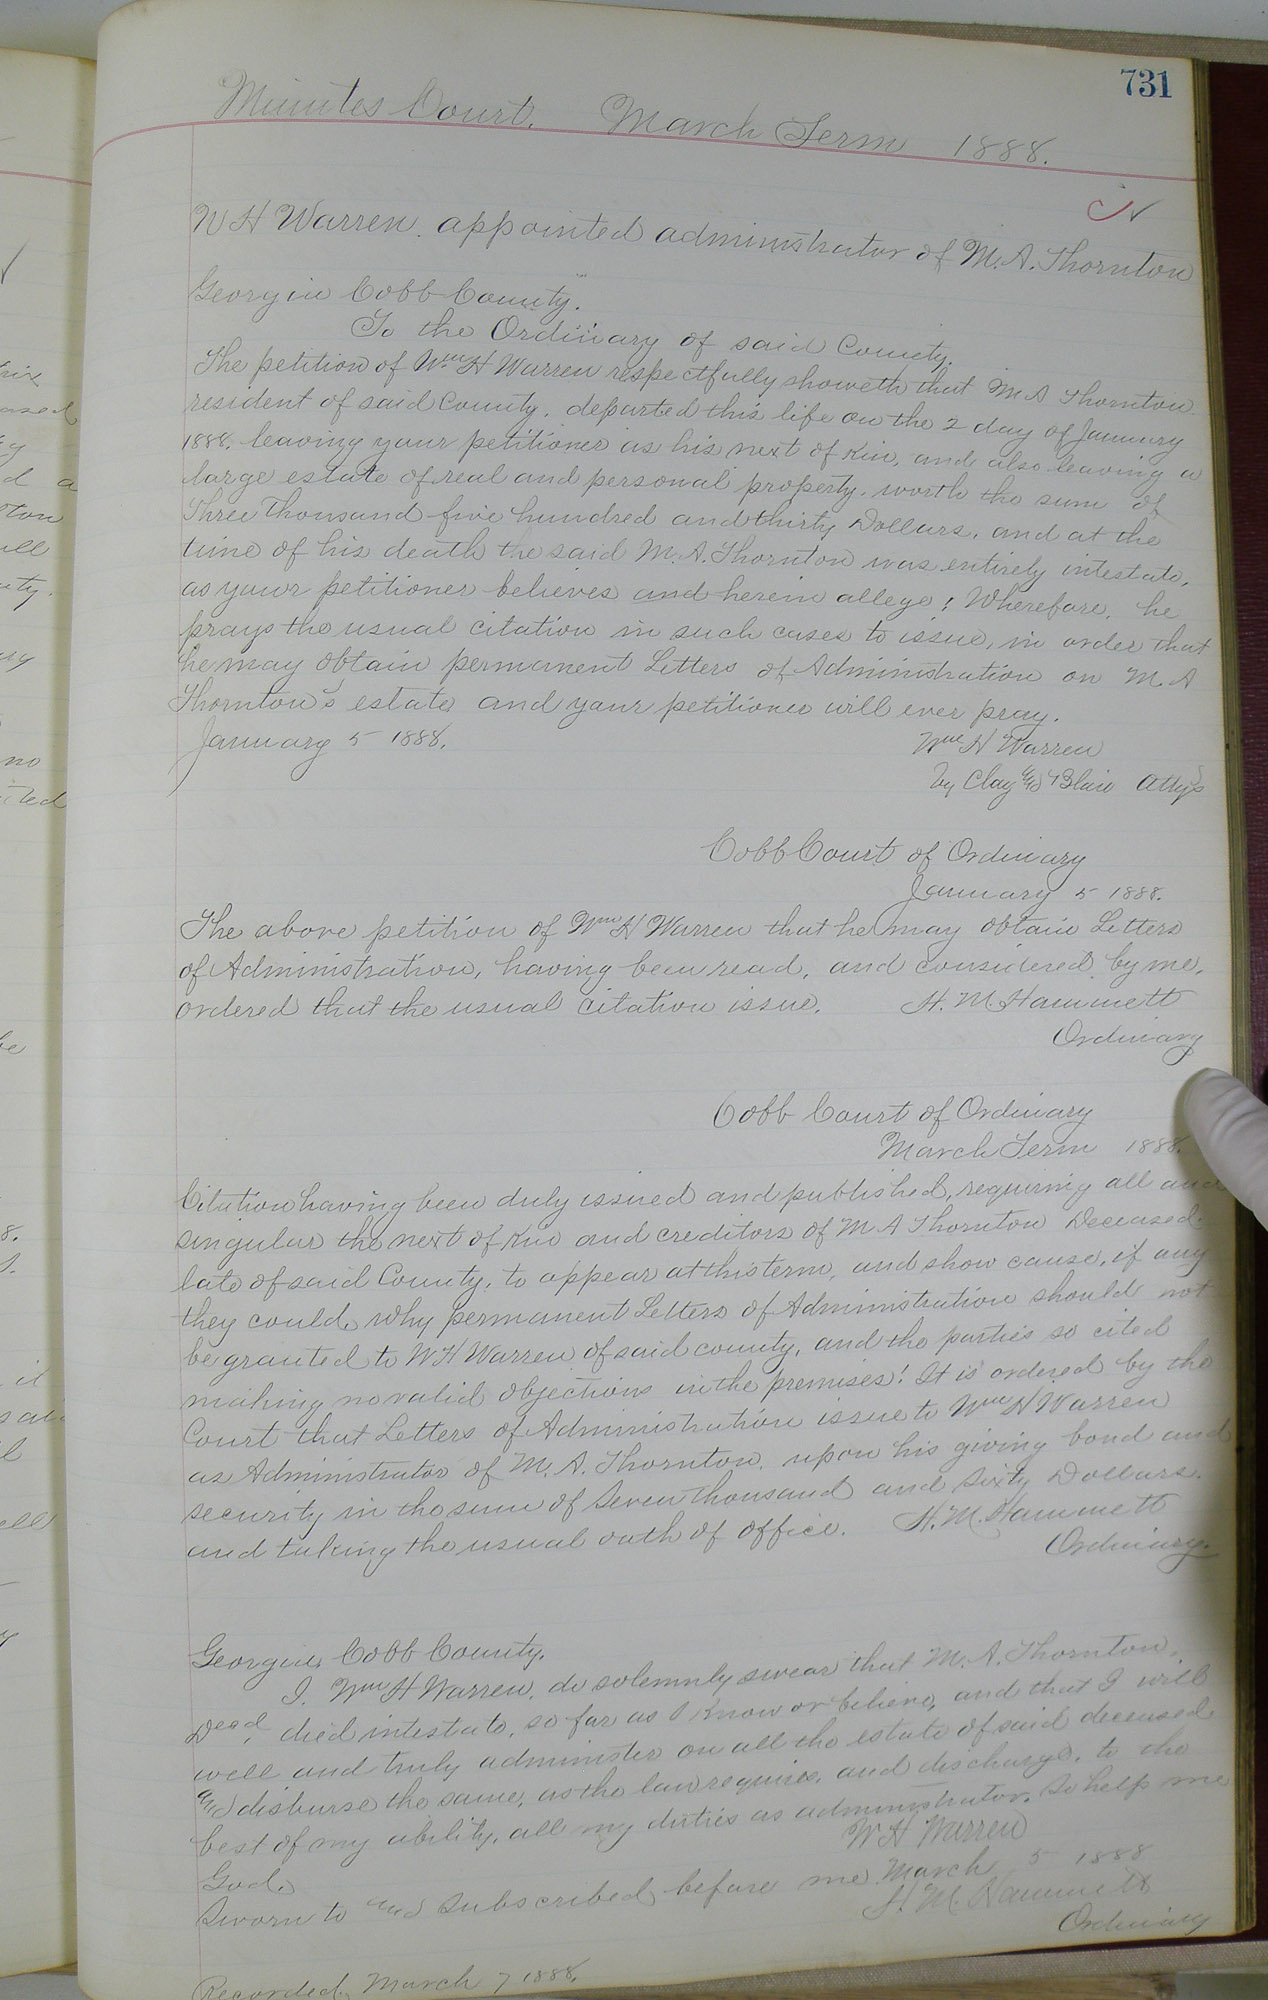 731
Minutes Court. March Term 1888.
W H Warren appointed administrator of M. A. Thornton
Georgia Cobb County.
To the Ordinary of said County.
The petition of Wm H Warren respectfully showeth that M A Thornton
resident of said County, departed this life on the 2 day of January
1888. leaving your petitioner as his next of kin, and also leaving a
large estate of real and personal property, worth the sum of
Three Thousand five hundred and thirty Dollars, and at the
time of his death the said M. A. Thornton was entirely intestate,
as your petitioner believes and herein allege; Wherefore, he
prays the usual citation in such cases to issue, in order that
he may obtain permanent Letters of Administration on M. A
Thornton's estate and your petitioner will ever pray.
January 5 1888.
Wm H Warren
by Clay & Blair Attys
Cobb Court of Ordinary
January 5 1888.
The above petition of Wm H Warren that he may obtain Letters
of Administration, having been read, and considered by me,
ordered that the usual citation issue. H. M. Hammett
Ordinary
Cobb Court of Ordinary
March Term 1888.
Citation having been duly issued and published, requiring all and
singular the next of kin and creditors of M A Thornton Deceased.
late of said County, to appear at this term, and show cause, if any
they could, why permanent Letters of Administration should not
be granted to W H Warren of said county, and the parties so cited
making no valid objections in the premises! It is ordered by the
Court that Letters of Administration issue to Wm H Warren
as Administrator of M. A. Thornton, upon his giving bond and
security in the sum of Seven Thousand and Sixty Dollars.
and taking the usual oath of office. H. M. Hammett
Ordinary.
Georgia, Cobb County.
I, Wm H Warren, do solemnly swear that M. A. Thornton,
Decd, died intestate, so far as I know or believe, and that I will
well and truly administer on all the estate of said deceased
and disburse the same, as the law requires, and discharge, to the
best of my ability, all my duties as administrator. So help me
God. W H Warren
Sworn to and subscribed before me March 5 1888
H M Hammett
Ordinary
Recorded, March 7 1888.